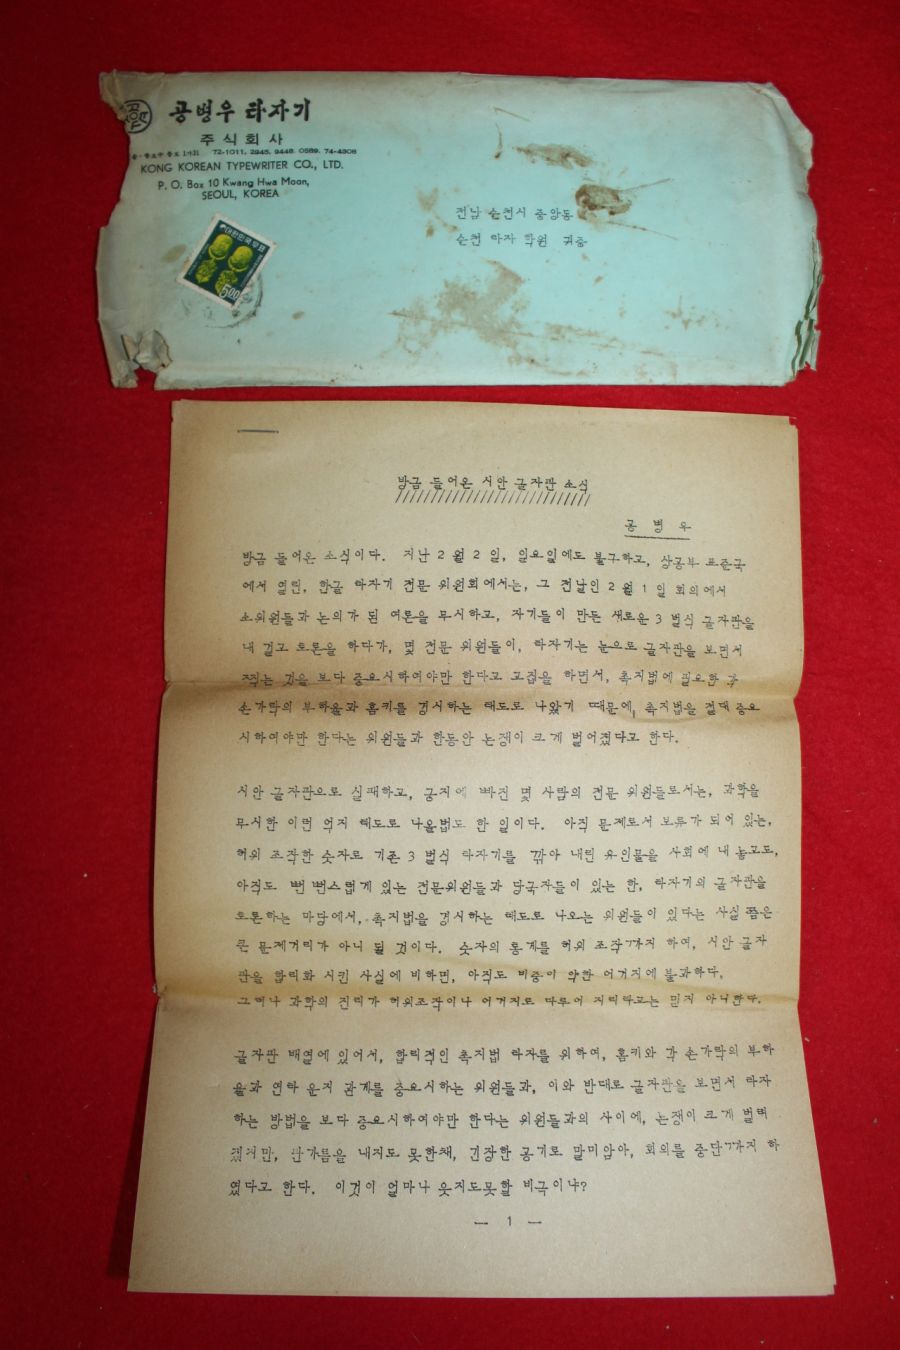 공병우 타자기
주식회사
72-1011, 2945, 9448, 0589, 74-4308
KONG KOREAN TYPEWRITER CO., LTD.
P. O. Box 10 Kwang Hwa Moon,
SEOUL, KOREA
대한민국우표
5.00
전남 순천시 중앙동
순천 타자 학원 귀중
방금 들어온 시안 글자판 소식
공 병 우
방금 들어온 소식이다. 지난 2월 2일, 일요일에도 불구하고, 상공부 표준국
에서 열린, 한글 타자기 전문 위원회에서는, 그 전날인 2월 1일 회의에서
소위원들과 논의가 된 여론을 무시하고, 자기들이 만든 새로운 3벌식 글자판을
내 걸고 토론을 하다가, 몇 전문 위원들이, 타자기는 눈으로 글자판을 보면서
찍는 것을 보다 중요시하여야만 한다고 고집을 하면서, 촉지법에 필요한 각
손가락의 부하율과 홈키를 경시하는 태도로 나왔기 때문에, 촉지법을 절대 중요
시하여야만 한다는 위원들과 한동안 논쟁이 크게 벌어졌다고 한다.
시안 글자판으로 실패하고, 궁지에 빠진 몇 사람의 전문 위원들로서는, 과학을
무시한 이런 억지 태도로 나올법도 한 일이다. 아직 문제로서 보류가 되어 있는,
허위 조작한 숫자로 기존 3벌식 타자기를 깎아 내린 유인물을 사회에 내 놓고도,
아직도 뻔뻔스럽게 있는 전문위원들과 당국자들이 있는 한, 타자기의 글자판을
토론하는 마당에서, 촉지법을 경시하는 태도로 나오는 위원들이 있다는 사실 쯤은
큰 문제거리가 아니 될 것이다. 숫자의 통계를 허위 조작까지 하여, 시안 글자
판을 합리화 시킨 사실에 비하면, 아직도 비중이 약한 어거지에 불과하다.
그러나 과학의 진리가 허위조작이나 어거지로 다루어 지리라고는 믿지 아니한다.
글자판 배열에 있어서, 합리적인 촉지법 타자를 위하여, 홈키와 각 손가락의 부하
율과 연타 운지 관계를 중요시하는 위원들과, 이와 반대로 글자판을 보면서 타자
하는 방법을 보다 중요시하여야만 한다는 위원들과의 사이에, 논쟁이 크게 벌어
졌지만, 판가름을 내지도 못한채, 긴장한 공기로 말미암아, 회의를 중단까지 하
였다고 한다. 이것이 얼마나 웃지도못할 비극이냐?
— 1 —